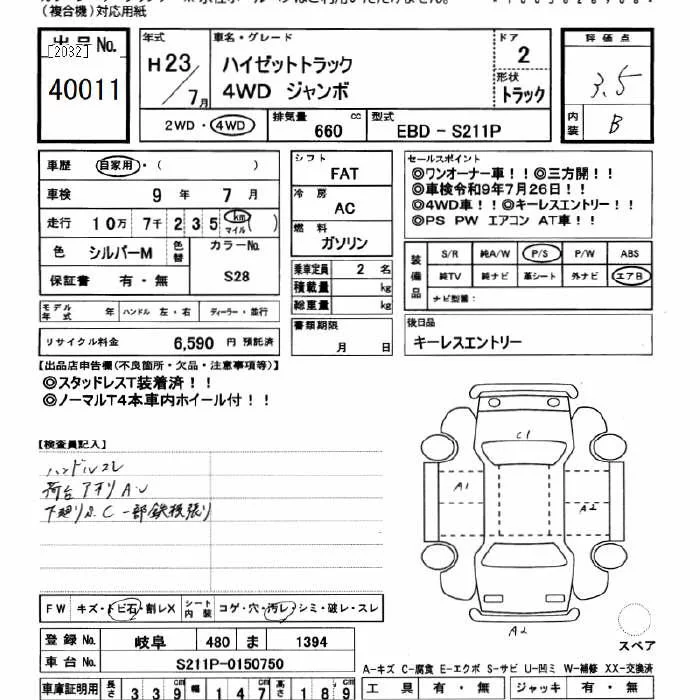 (複合機)対応用紙
出品 No.
[2032]
40011
年式
H23/7月
車名・グレード
ハイゼットトラック
4WD ジャンボ
ドア
2
形状
トラック
2WD・4WD
排気量
660 cc
型式
EBD-S211P
評価点
3.5
内装
B
車歴 自家用・( )
車検 9年 7月
走行 10万 7千 235 km マイル ( )
色 シルバーM 色替
カラーNo.
S28
保証書 有・無
モデル年式 年 ハンドル 左・右 ディーラー・並行
リサイクル料金 6,590 円 預託済
シフト
FAT
冷房
AC
燃料
ガソリン
乗車定員 2 名
積載量 kg
総重量 kg
書類期限
月 日
セールスポイント
◎ワンオーナー車!!◎三方開!!
◎車検令和9年7月26日!!
◎4WD車!!◎キーレスエントリー!!
◎PS PW エアコン AT車!!
装備品
S/R 純A/W P/S P/W ABS
純TV 純ナビ 革シート 外ナビ エアB
ナビ型番:
後日品
キーレスエントリー
【出品店申告欄(不良箇所・欠品・注意事項等)】
◎スタッドレスT装着済!!
◎ノーマルT4本車内ホイール付!!
【検査員記入】
ハンドルスレ
荷台アオリ A.U
下廻りS.C 一部鉄板張り
C1
A1
A2
A2
スペア
FW キズ・トビ石・割レX
シート内装 コゲ・穴・汚レ・シミ・破レ・スレ
登録 No. 岐阜 480 ま 1394
車台 No. S211P-0150750
車庫証明用 長さ 339cm 幅 147cm 高さ 189cm
A-キズ C-腐食 E-エクボ S-サビ U-凹ミ W-補修 XX-交換済
工具 有・無 ジャッキ 有・無